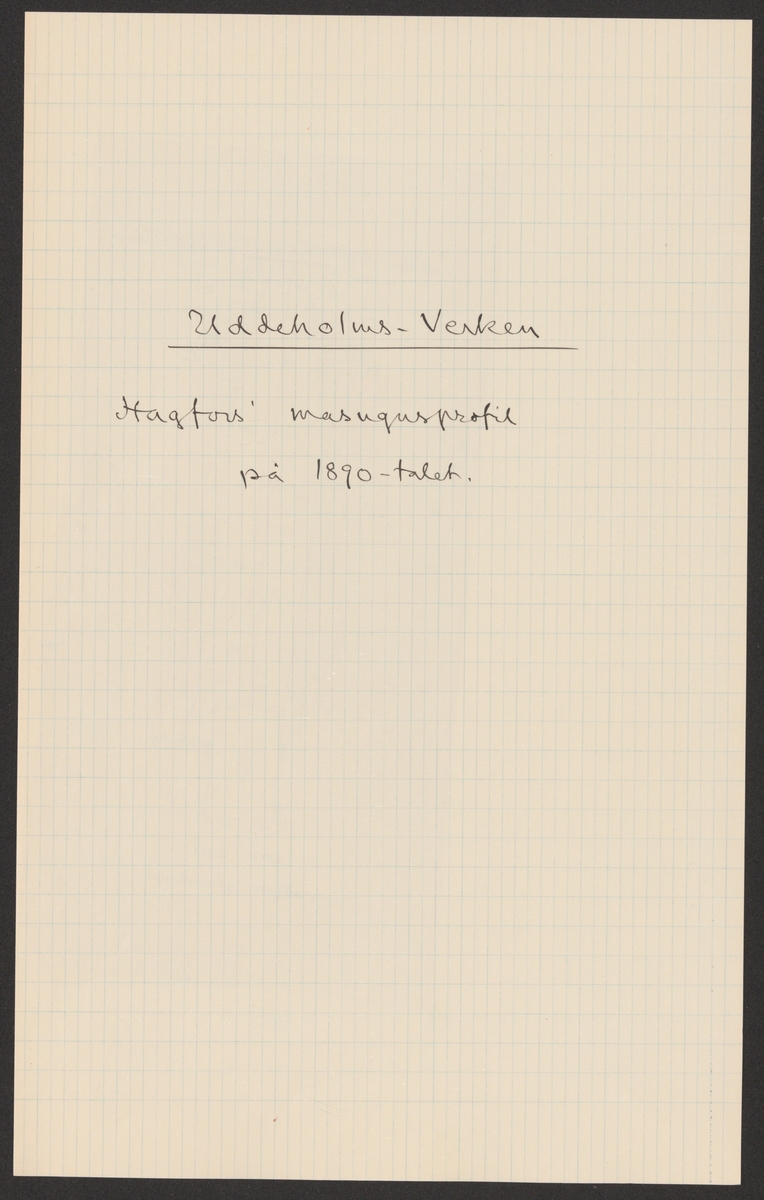 Uddeholms-Verken
Hagfors' masugnsprofil
på 1890-talet.